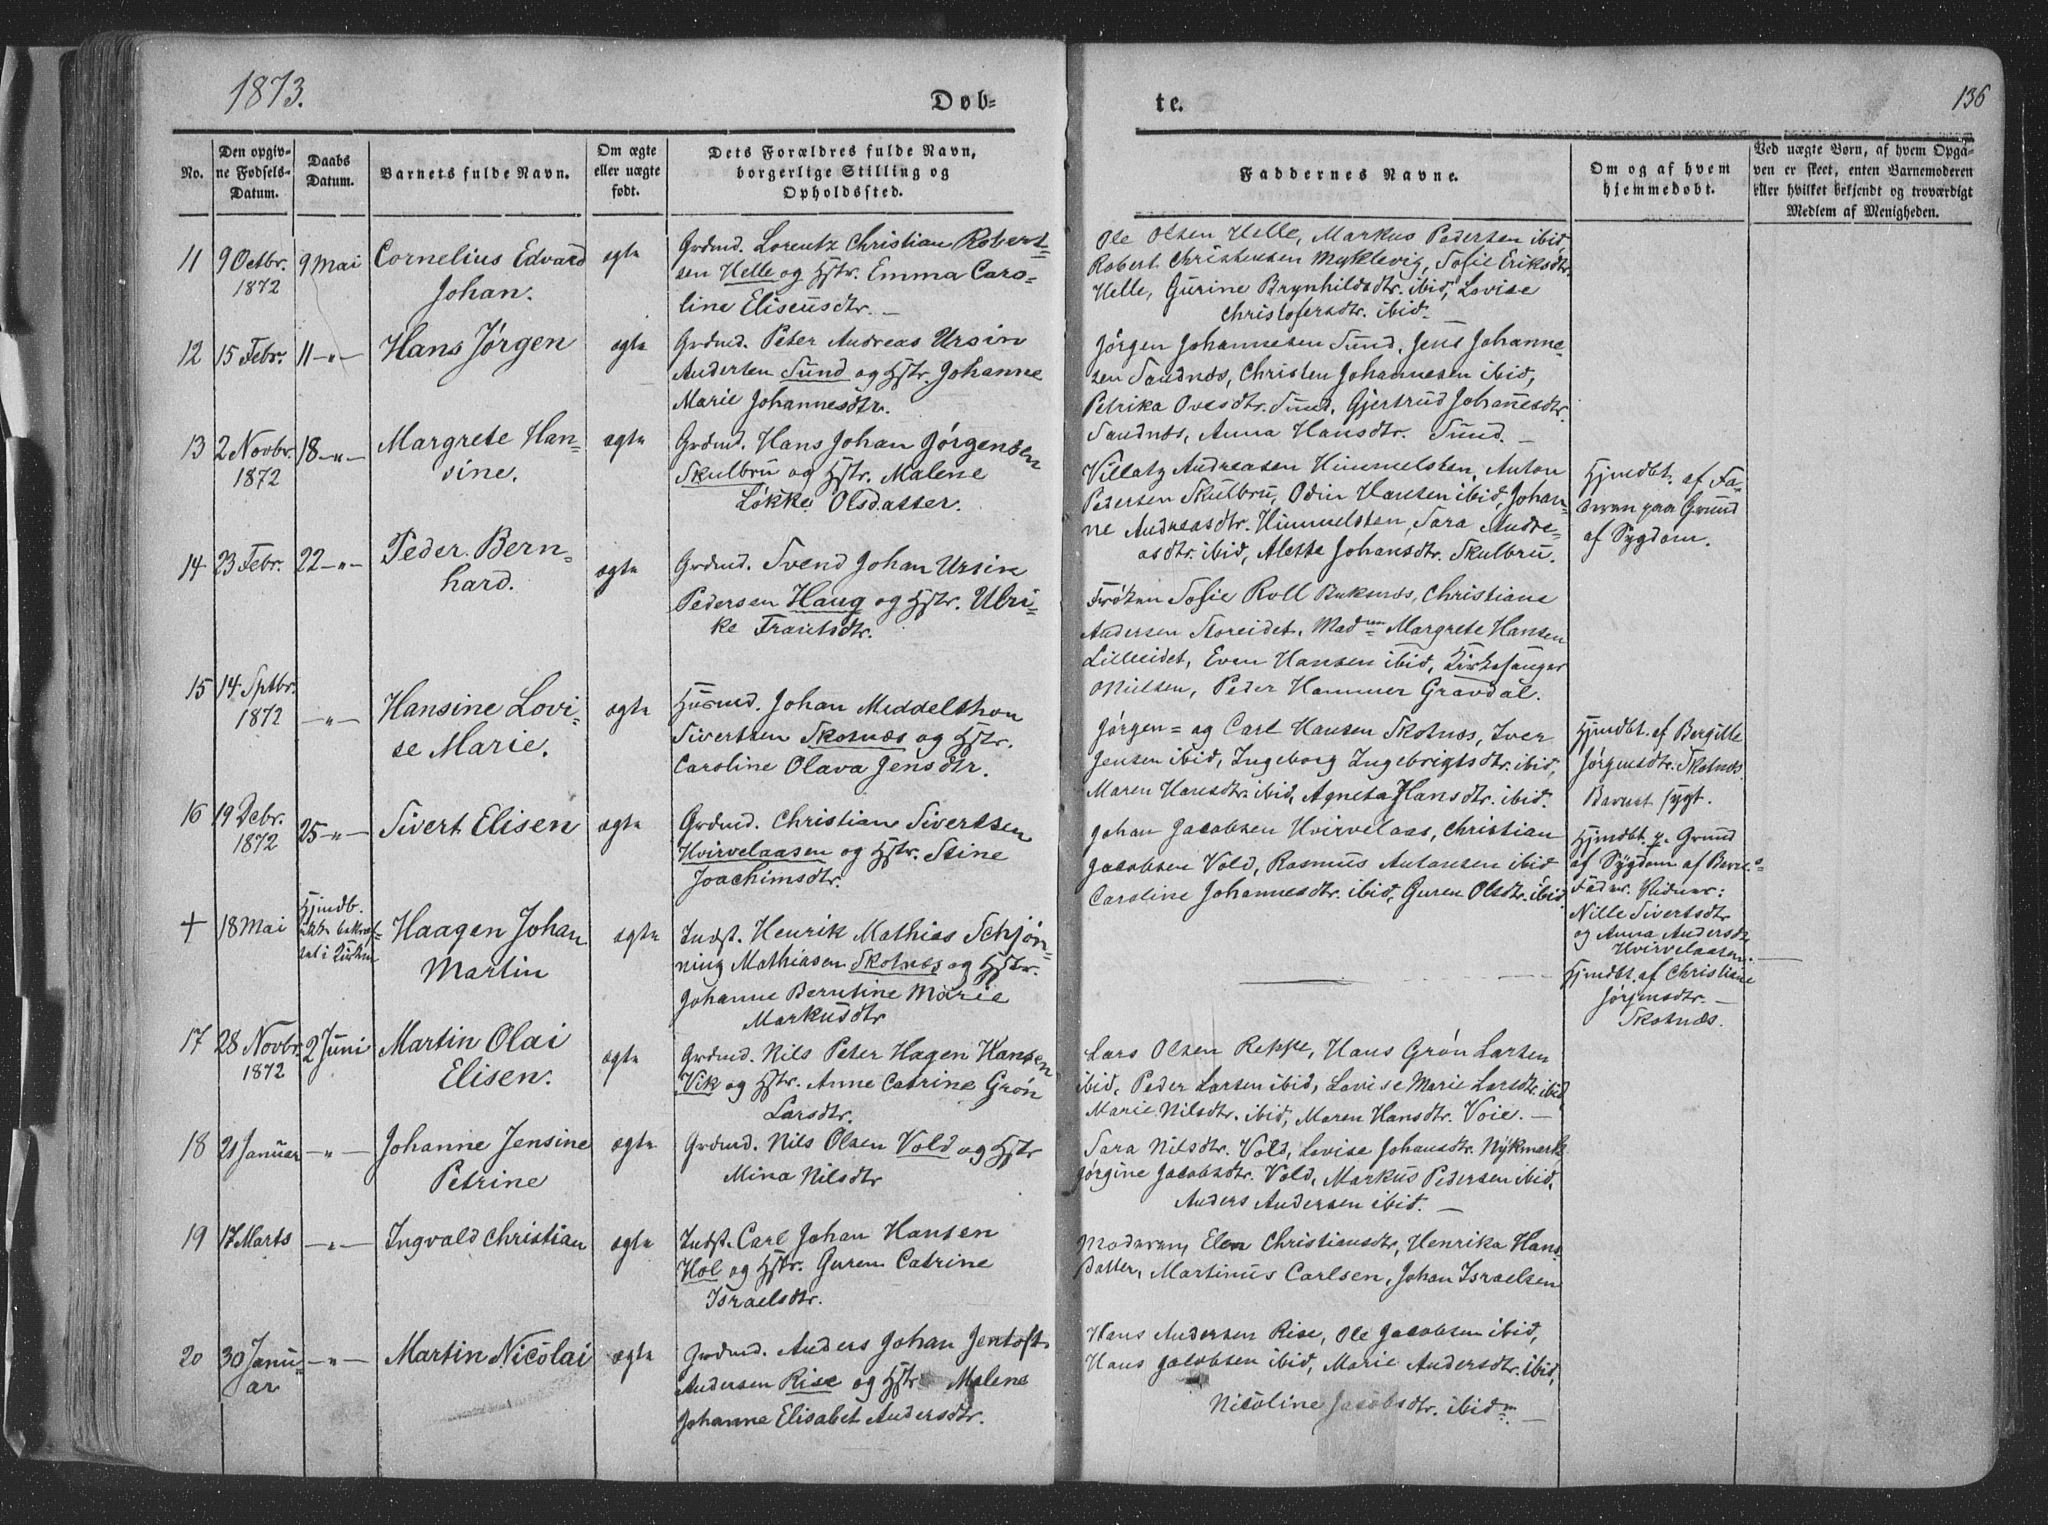 1873.
Døb-
te.
136
No.
Den opgiv-
ne Fødsels-
Datum.
Daabs
Datum.
Barnets fulde Navn.
Om ægte
eller uægte
født.
Dets Forældres fulde Navn,
borgerlige Stilling og
Opholdssted.
Faddernes Navne.
Om og af hvem
hjemmedøbt.
Ved uægte Børn, af hvem Opga-
ven er skeet, enten Barnemoderen
eller hvilket bekjendt og troværdigt
Medlem af Menigheden.
11
9 Octbr.
1872
9 Mai
Cornelius Edvard
Johan.
ægte
Grdmd. Lorentz Christian Robert-
sen Helle og Hstr. Emma Caro-
line Eliseusdtr. –
Ole Olsen Helle, Markus Pedersen ibid,
Robert Christensen Myklevig, Sofie Eriksdtr.
Helle, Gurine Brynhildsdtr. ibid, Lovise
Christofersdtr. ibid. –
12
15 Febr.
11 –„–
Hans Jørgen
ægte
Grdmd. Peter Andreas Ursin
Andersen Sund og Hstr. Johanne
Marie Johannesdtr.
Jørgen Johannesen Sund, Jens Johanne-
sen Sandnæs, Christen Johannesen ibid,
Petrika Ovesdtr. Sund, Gjertrud Johannesdtr.
Sandnæs, Anna Hansdtr. Sund. –
13
2 Novbr.
1872
18 –„–
Margrete Han-
sine.
ægte
Grdmd. Hans Johan Jørgensen
Skulbru og Hstr. Malene
Løkke Olsdatter.
Villatz Andreasen Himmelsten, Anton
Pedersen Skulbru, Odin Hansen ibid, Johan-
ne Andreasdtr. Himmelsten, Sara Andre-
asdtr. ibid, Aleste Johansdtr. Skulbru.
Hjmdbt. af Fa-
deren paa Grund
af Sygdom.
14
23 Febr.
22 –„–
Peder Bern-
hard.
ægte
Grdmd. Svend Johan Ursin
Pedersen Haug og Hstr. Ulri-
ke Frantsdtr.
Frøken Sofie Roll Buksnæs, Christiane
Andersen Storeidet, Madm Margrete Hansen
Lilleeidet, Even Hansen ibid, Kirkesanger
Nielsen, Peder Hammer Gravdal.
15
14 Sptbr.
1872
–„–
Hansine Lovi-
se Marie.
ægte
Husmd. Johan Middelthon
Sivertsen Skotnæs og Hstr.
Caroline Olava Jensdtr.
Jørgen= og Carl Hansen Skotnæs, Iver
Jensen ibid, Ingeborg Ingebrigtsdtr. ibid,
Maren Hansdtr. ibid, Agneta Hansdtr. ibid.
Hjmdbt. af Bergitte
Jørgensdtr. Skotnæs.
Barnet sygt.
16
19 Decbr.
1872
25 –„–
Sivert Elisen
ægte
Grdmd. Christian Sivertsen
Hvirvelaasen og Hstr. Stine
Joachimsdtr.
Johan Jacobsen Hvirvelaas, Christian
Jacobsen Vold, Rasmus Antonsen ibid
Caroline Johannesdtr. ibid, Guren Olsdtr. ibid.
Hjmdbt. p. Grund
af Sygdom af Barnets
Fader. Vidner:
Nille Sivertsdtr
og Anna Andersdtr
Hvirvelaasen.
+
18 Mai
Hjmdb.
ikke bekræf-
tet i Kirken
Haagen Johan
Martin
ægte
Indst. Henrik Mathias Schjøn-
ning Mathiasen Skotnæs og Hstr.
Johanne Berntine Marie
Markusdtr
Hjmdbt. af Christiane
Jørgensdtr. –
Skotnæs.
17
28 Novbr.
1872
2 Juni
Martin Olai
Elisen.
ægte
Grdmd. Nils Peter Hagen Hansen
Vik og Hstr. Anne Catrine Grøn
Larsdtr.
Lars Olsen Reppe, Hans Grøn Larsen
ibid, Peder Larsen ibid, Lovise Marie Larsdtr. ibid,
Marie Nilsdtr. ibid, Maren Hansdtr. Voie. –
18
21 Januar
–„–
Johanne Jensine
Petrine
ægte
Grdmd. Nils Olsen Vold og Hstr
Mina Nilsdtr
Sara Nilsdtr. Vold, Lovise Johansdtr. Nykmark
Jørgine Jacobsdtr. Vold, Markus Pedersen ibid,
Anders Andersen ibid. –
19
17 Marts
–„–
Ingvald Christian
ægte
Indst. Carl Johan Hansen
Hol og Hstr. Guren Catrine
Israelsdtr.
Moderen, Elen Christiansdtr, Henrika Hans-
datter, Martinus Carlsen, Johan Israelsen
20
30 Janu-
ar
–„–
Martin Nicolai
ægte
Grdmd. Anders Johan Jentoft
Andersen Rise og Hstr Malene
Johanne Elisabet Andersdtr.
Hans Andersen Rise, Ole Jacobsen ibid,
Hans Jacobsen ibid, Marie Andersdtr. ibid,
Nicoline Jacobsdtr. ibidm –